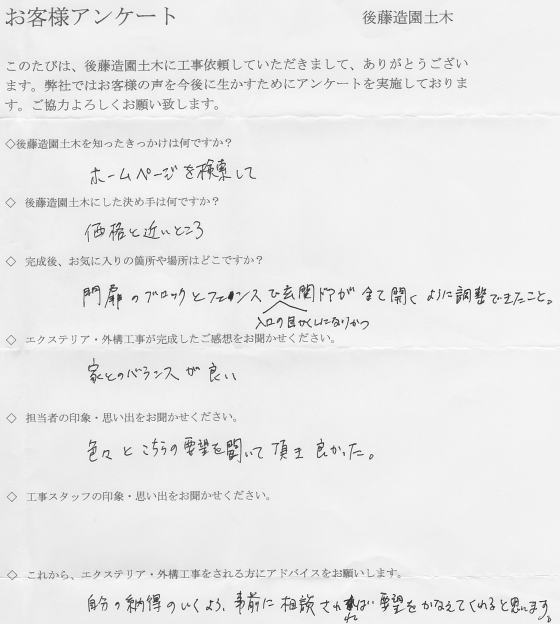 お客様アンケート 後藤造園土木
このたびは、後藤造園土木に工事依頼していただきまして、ありがとうござい
ます。弊社ではお客様の声を今後に生かすためにアンケートを実施しておりま
す。ご協力よろしくお願い致します。
◇後藤造園土木を知ったきっかけは何ですか？
ホームページを検索して
◇ 後藤造園土木にした決め手は何ですか？
価格と近いところ
◇ 完成後、お気に入りの箇所や場所はどこですか？
門扉のブロックとフェンスで玄関ドアが全て開くように調整できたこと。
入口の目かくしになりかつ
◇ エクステリア・外構工事が完成したご感想をお聞かせください。
家とのバランスが良い
◇ 担当者の印象・思い出をお聞かせください。
色々とこちらの要望を聞いて頂き良かった。
◇ 工事スタッフの印象・思い出をお聞かせください。
◇ これから、エクステリア・外構工事をされる方にアドバイスをお願いします。
自分の納得のいくよう、事前に相談されれば要望をかなえてくれると思います。